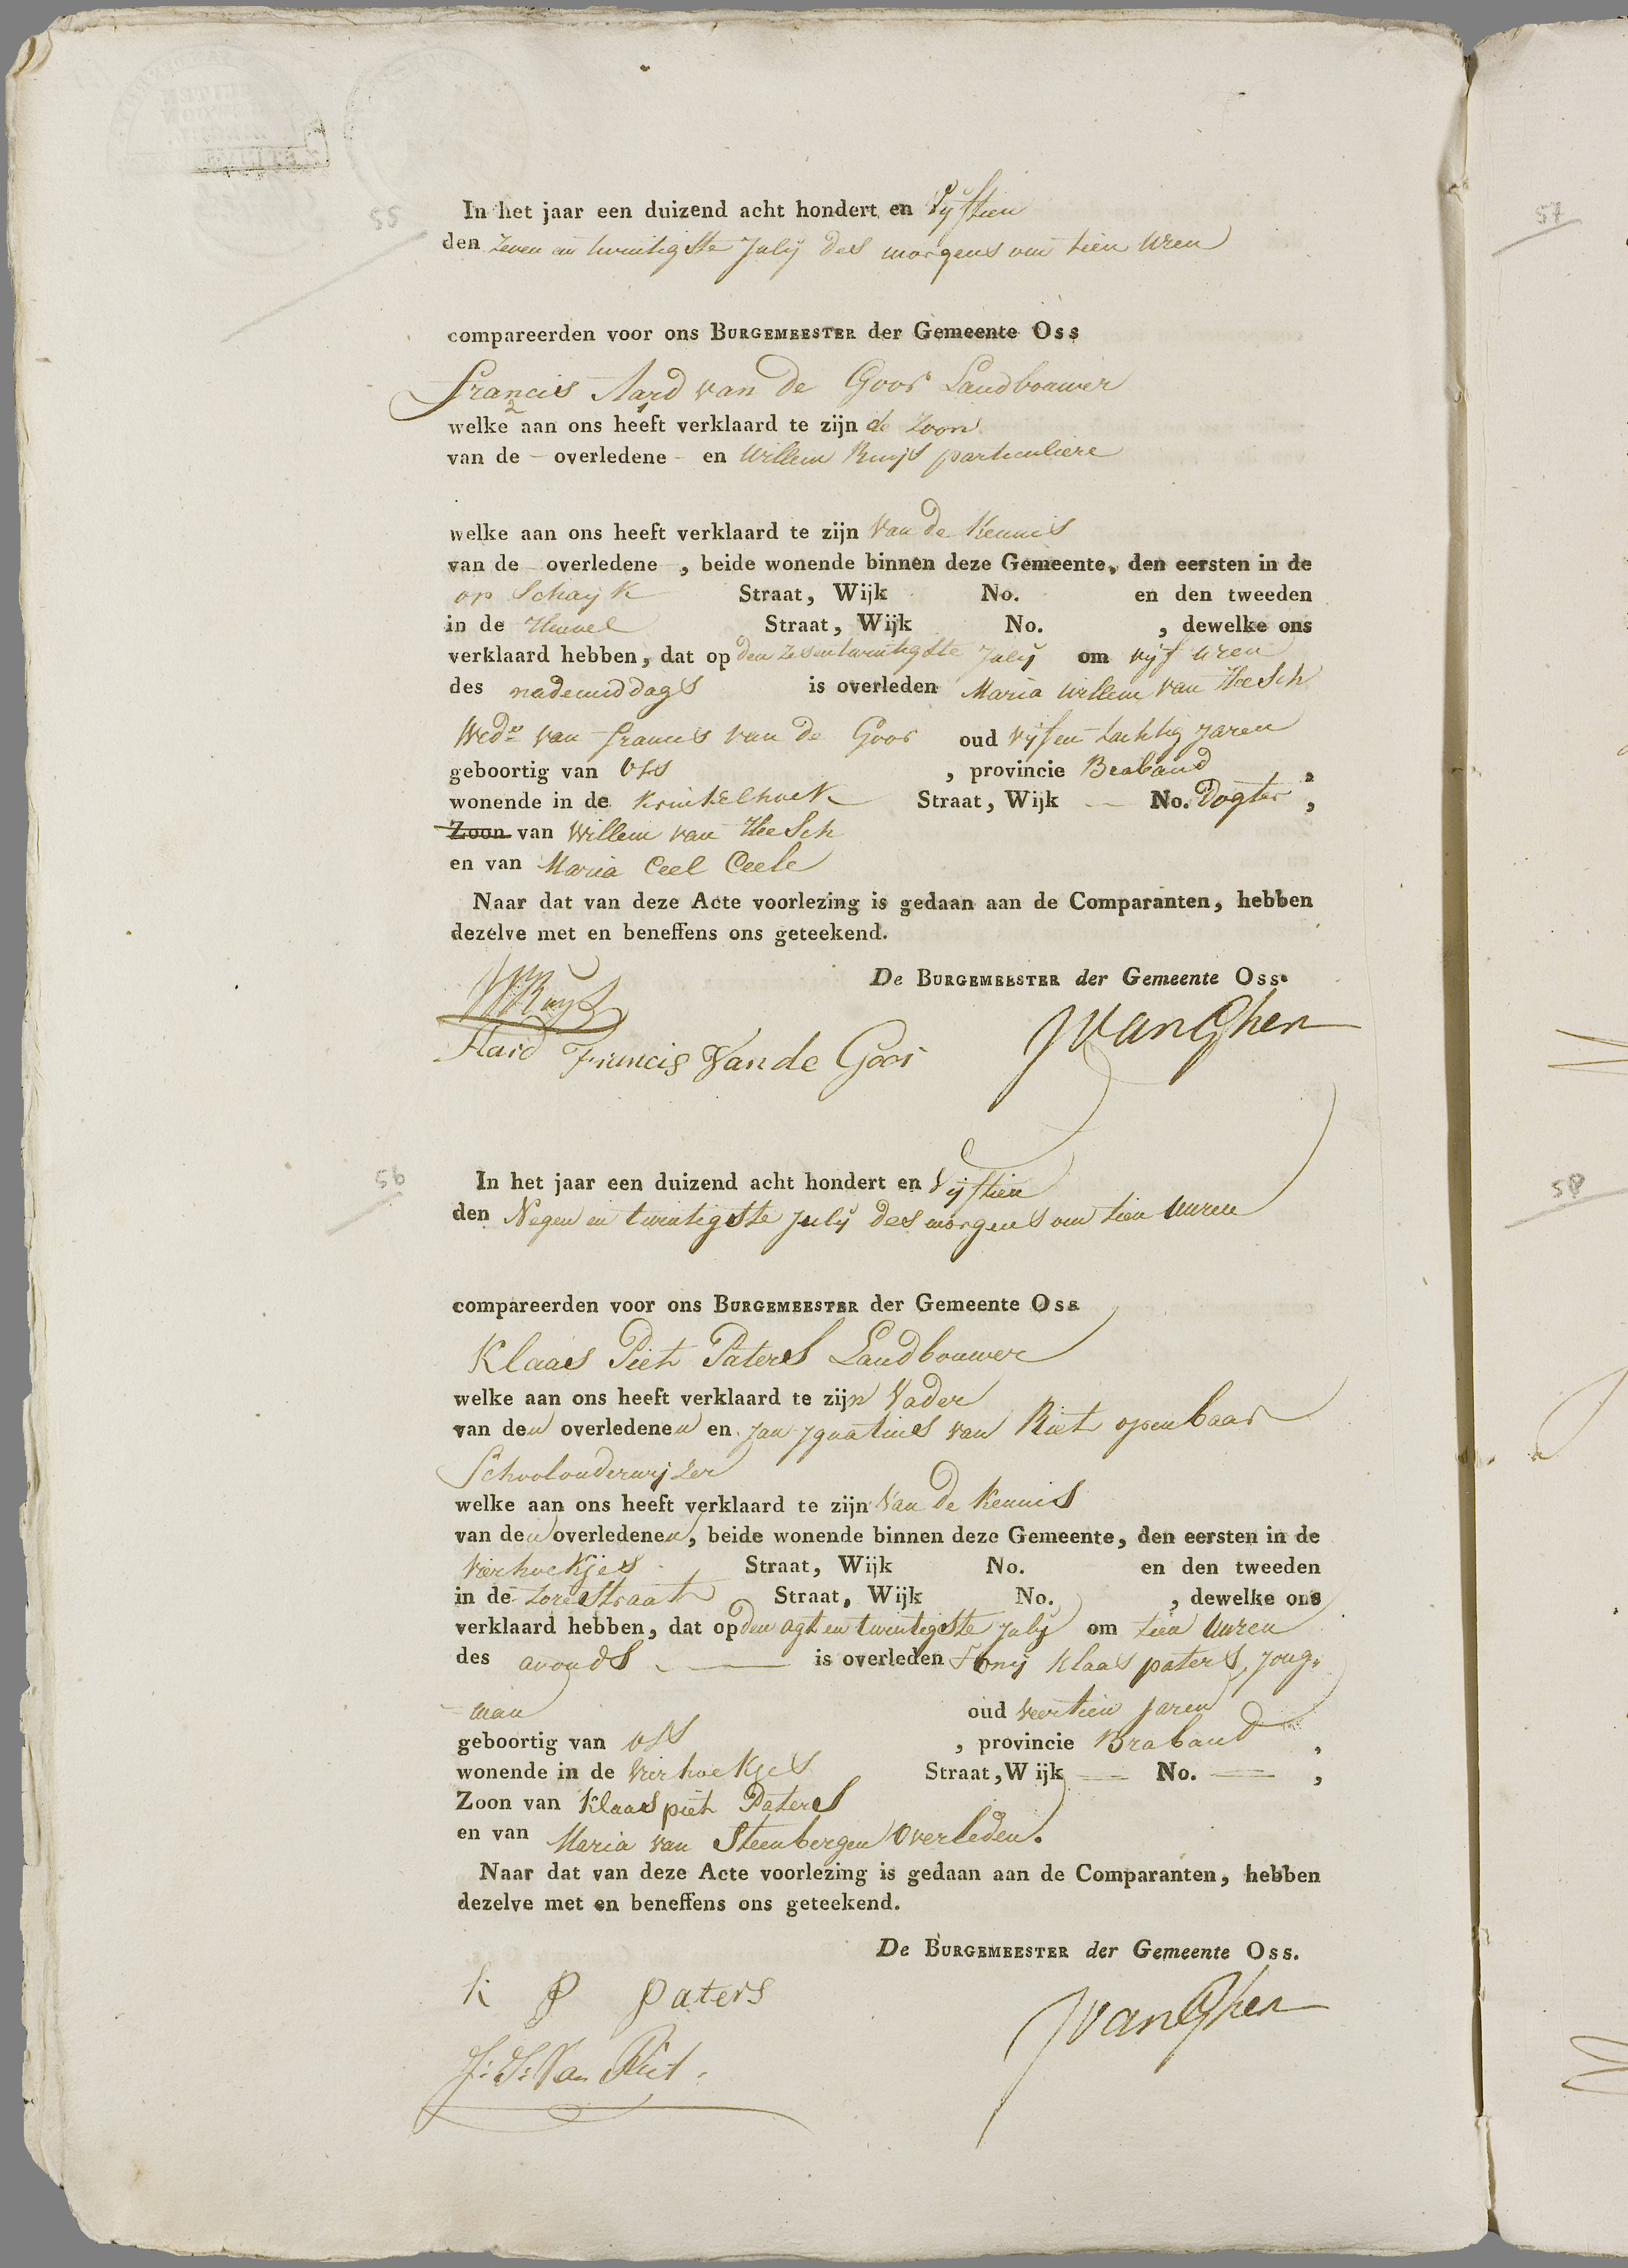 55
In het jaar een duizend acht hondert en Vyftien
den Zeven en twintigste July des morgens om tien Uren
compareerden voor ons BURGEMEESTER der Gemeente Oss
Francis Aard van de Goor Landbouwer
2 1
welke aan ons heeft verklaard te zijn de zoon
van de - overledene - en Willem Ruijs particuliere
welke aan ons heeft verklaard te zijn Van de Kennis
van de overledene , beide wonende binnen deze Gemeente, den eersten in de
op Schayk Straat, Wijk No. en den tweeden
in de Heuvel Straat, Wijk No. , dewelke ons
verklaard hebben, dat op den Zesentwintigste July om vyf uren
des nademiddags is overleden Maria Willem van Heesch
Wede van francis van de Goor oud vyfen tachtig Jaren
geboortig van Oss , provincie Braband ,
wonende in de Krinkelhoek Straat, Wijk — No. Dogter ,
Zoon van Willem van Heesch
en van Maria Ceel Ceele
Naar dat van deze Acte voorlezing is gedaan aan de Comparanten, hebben
dezelve met en beneffens ons geteekend.
De BURGEMEESTER der Gemeente Oss.
WRuys
JvanGhen
Aard Francis Van de Goor
56
In het jaar een duizend acht hondert en Vijftien
den Negen en twintigste July des morgens om tien Uuren
compareerden voor ons BURGEMEESTER der Gemeente Oss
Klaas Piet Paters Landbouwer
welke aan ons heeft verklaard te zijn Vader
van den overledenen en Jan Ignatius van Riet openbaar
Schoolonderwijzer
welke aan ons heeft verklaard te zijn Van de Kennis
van den overledenen, beide wonende binnen deze Gemeente, den eersten in de
Vierhoekjes Straat, Wijk No. en den tweeden
in de Torestraat Straat, Wijk No. , dewelke ons
verklaard hebben, dat op den agt en twintigste July om tien Uuren
des avonds — is overleden Tony Klaas paters, Jong-
man oud veertien Jaren
geboortig van Oss , provincie Braband ,
wonende in de Vierhoekjes Straat, Wijk — No. — ,
Zoon van Klaas piet Paters
en van Maria van Steenbergen Overleden.
Naar dat van deze Acte voorlezing is gedaan aan de Comparanten, hebben
dezelve met en beneffens ons geteekend.
De BURGEMEESTER der Gemeente Oss.
K P Paters
JvanGhen
J: I: Van Riet.
57
58